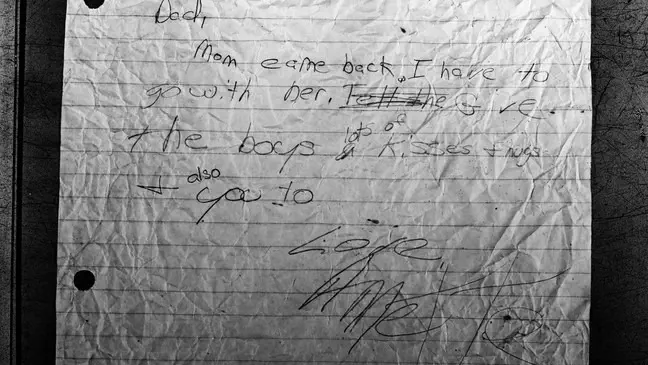 Dad,
Mom came back. I have to
go with her. Tell the Give
the boys lots of kisses + hugs
+ also you to
Love